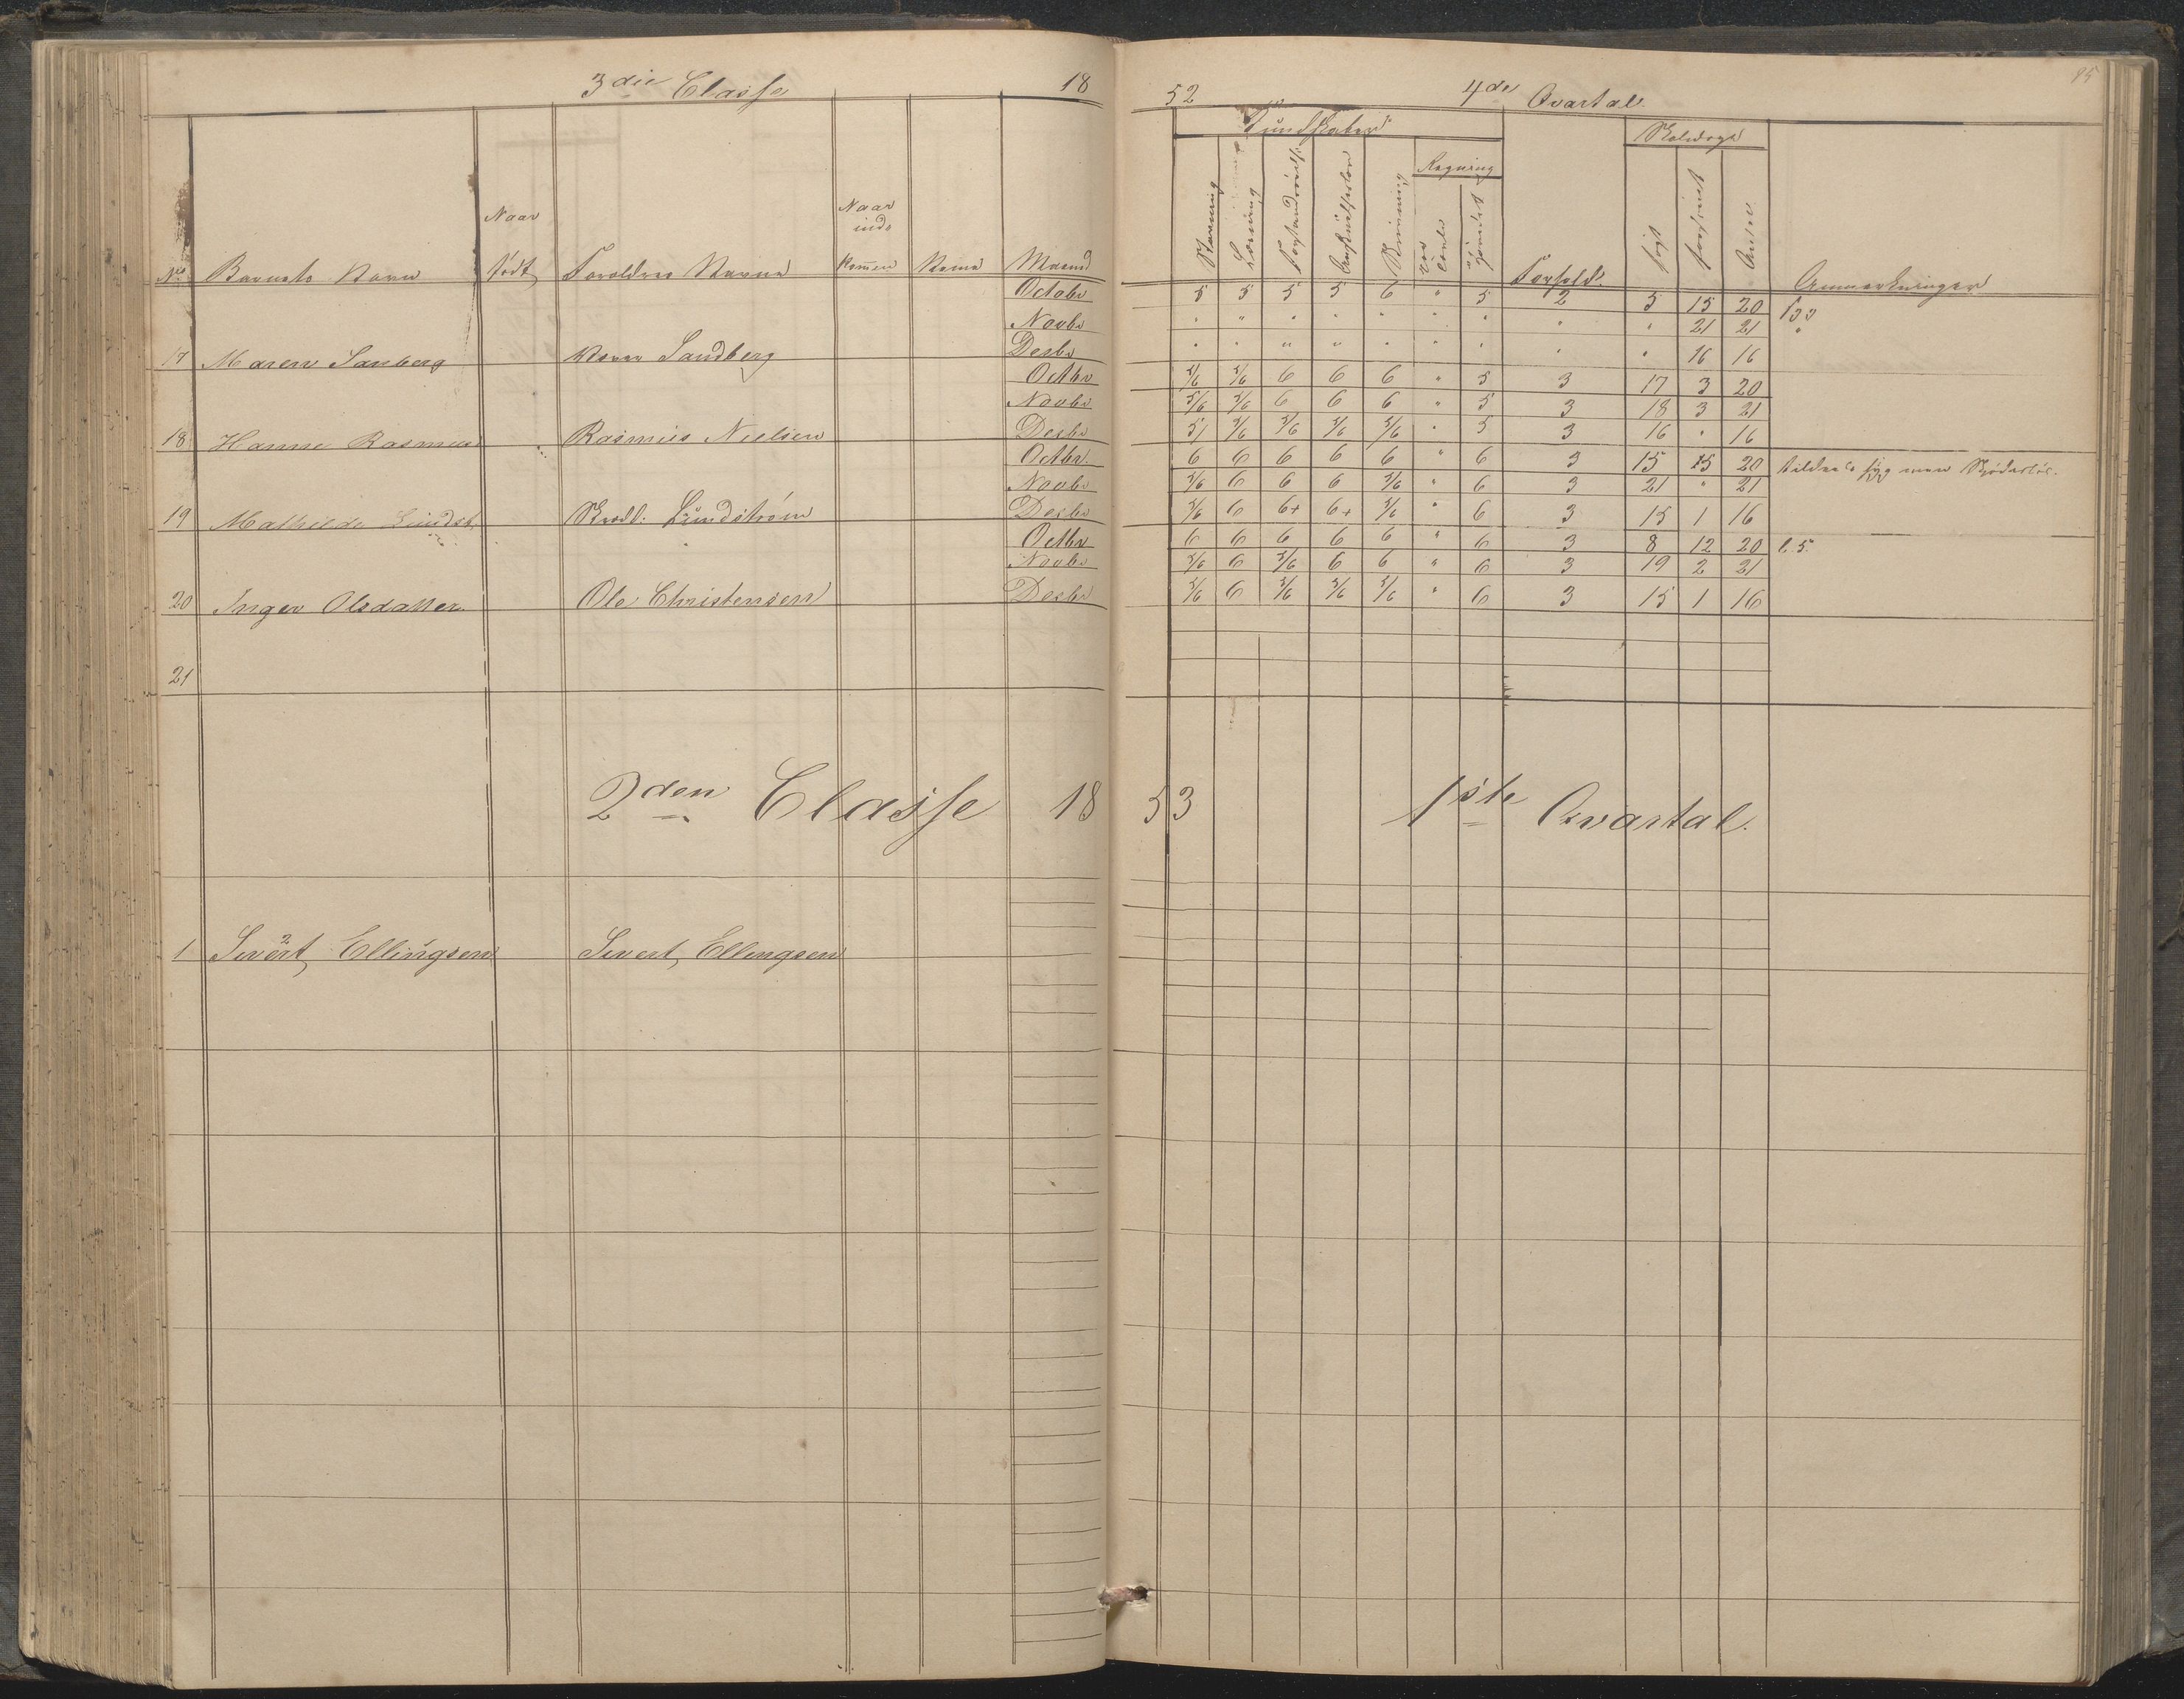 3die Classe 18 52 4de Qvartal 95
Kundskaber Skoledage
Regning
Staening Læsning Skrivning
Naar Naar
inds
No Barnets Navn født Forældres Navne kommen Maaned Forhold søgt forsømt Anmerkninger
Octobr 5 5 5 5 6 " 5 2 5 15 20
Novbr " " " " " " " " " 21 21 "
17 Maren Sanberg Sandberg Desbr " " " " " " " " " 16 16
Octbr 5/6 5/6 6 6 6 " 5 3 17 3 20
Novbr 5/6 5/6 6 6 6 " 5 3 18 3 21
18 Hanne Rasmus Rasmus Nielsen Desbr 5/ 5/6 5/6 5/6 5/6 " 5 3 16 " 16
Octbr. 6 6 6 6 6 " 6 3 15 15 20 syg men
Novbr 5/6 6 6 6 5/6 " 6 3 21 " 21
19 Mathilde Lundst. Lundstrøm Desbr 5/6 6 6+ 6+ 5/6 " 6 3 15 1 16
Octbr 6 6 6 6 6 " 6 3 8 12 20
Novbr 5/6 6 5/6 6 6 " 6 3 19 2 21
20 Inger Olsdatter Ole Christensen Desbr 5/6 6 5/6 5/6 5/6 " 6 3 15 1 16
21
2den Classe 18 53 1ste Qvartal.
2
1 Sivert, Ellingsen Sivert, Ellingsen